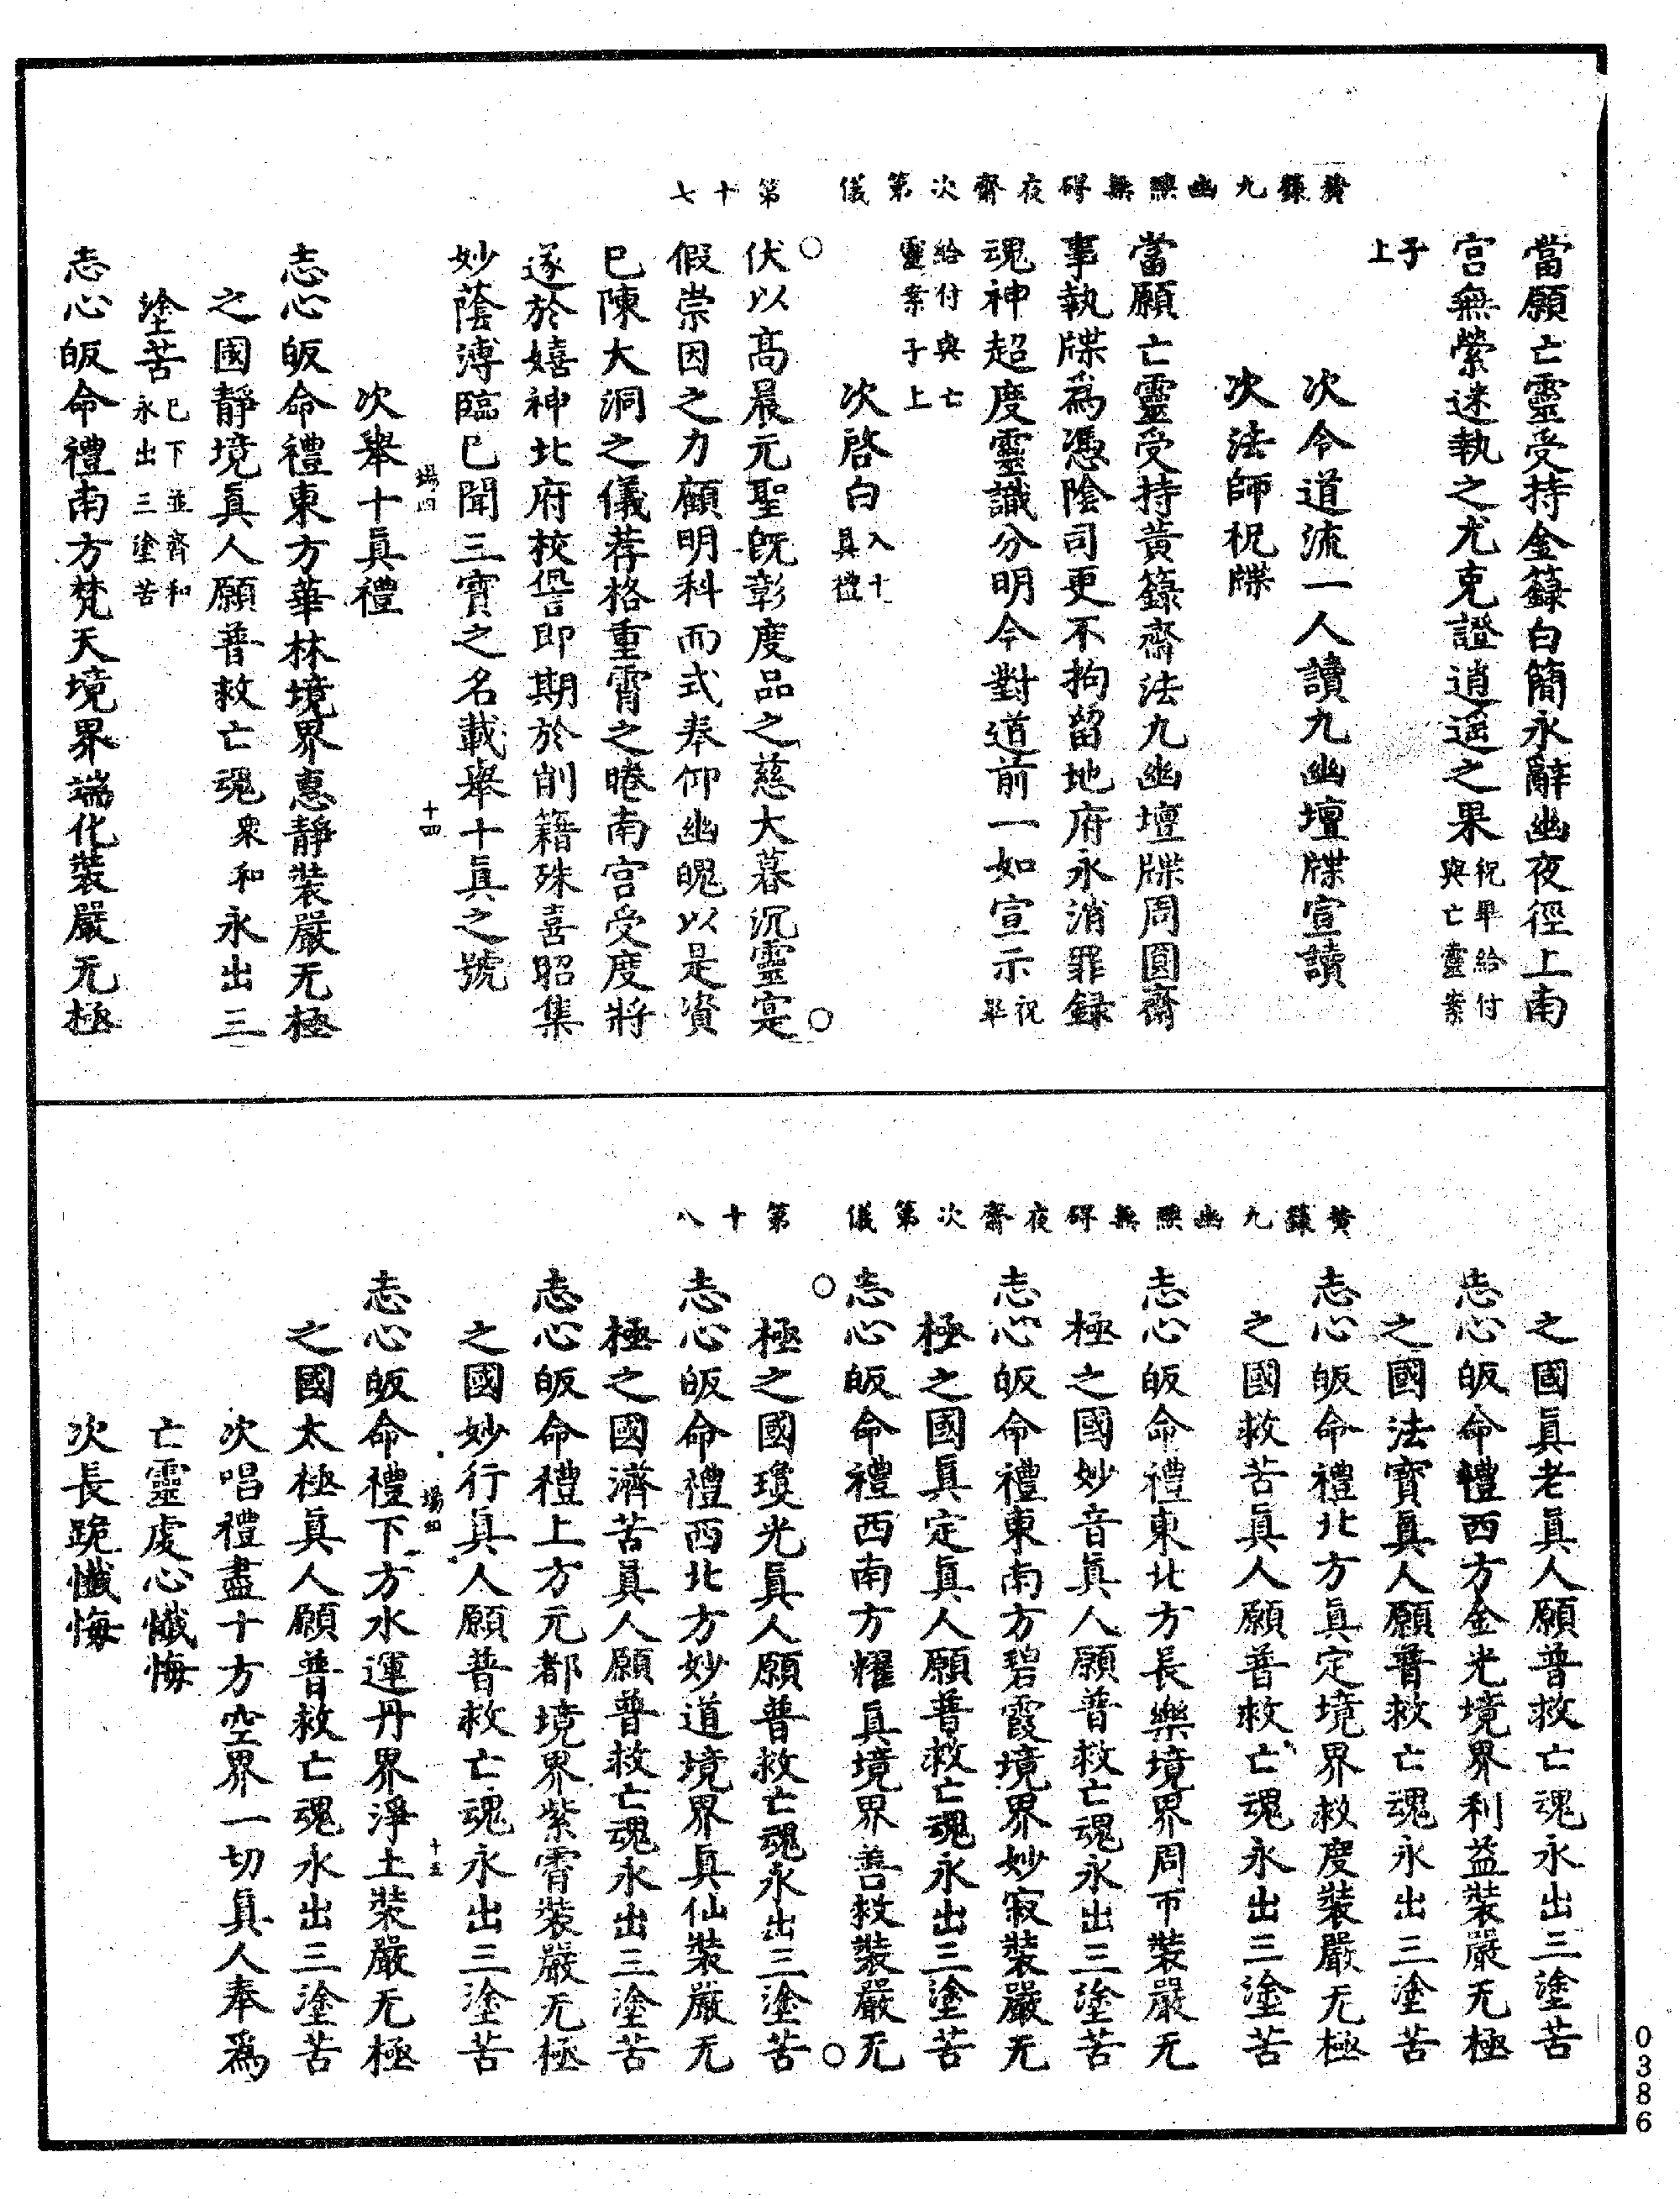 黃籙九幽醮無碍夜齋次第儀　第十七
當願亡靈受持金籙白簡永辭幽夜徑上南
宮無縈迷執之尤克證逍遥之果祝畢給付與亡靈案
子上
次令道流一人讀九幽壇牒宣讀
次法師祝牒
當願亡靈受持黃籙齋法九幽壇牒周圓齋
事執牒為憑陰司更不拘留地府永消罪録
魂神超度靈識分明今對道前一如宣示祝畢
給付與亡靈案子上
次啓白入十眞禮
伏以髙晨元聖旣彰度品之慈大暮沉靈寔
假崇因之力顧明科而式奉仰幽䰟以是資
已陳大洞之儀荐格重霄之睠南宮受度將
遂於嬉神北府校諐即期於削籍殊喜昭集
妙蔭溥臨已聞三寶之名載舉十眞之號
場四　十四
次舉十眞禮
志心皈命禮東方華林境界惠靜裝嚴无極
之國靜境眞人願普救亡魂衆和永出三
塗苦已下並齊和永出三塗苦
志心皈命禮南方梵天境界端化裝嚴无極
黃籙九幽醮無碍夜齋次第儀　第十八
之國眞老眞人願普救亡魂永出三塗苦
志心皈命禮西方金光境界利益裝嚴无極
之國法寶眞人願普救亡魂永出三塗苦
志心皈命禮北方眞定境界救度裝嚴无極
之國救苦眞人願普救亡魂永出三塗苦
志心皈命禮東北方長樂境界周帀裝嚴无
極之國妙音眞人願普救亡魂永出三塗苦
志心皈命禮東南方碧霞境界妙寂裝嚴无
極之國眞定眞人願普救亡魂永出三塗苦
志心皈命禮西南方耀眞境界善救裝嚴无
極之國瓊光眞人願普救亡魂永出三塗苦
志心皈命禮西北方妙道境界眞仙裝嚴无
極之國濟苦眞人願普救亡魂永出三塗苦
志心皈命禮上方元都境界紫霄裝嚴无極
之國妙行眞人願普救亡魂永出三塗苦
場四　十五
志心皈命禮下方水運丹界淨土裝嚴无極
之國太極眞人願普救亡魂永出三塗苦
次唱禮盡十方空界一切眞人奉爲
亡靈虔心懺悔
次長跪懺悔
0386